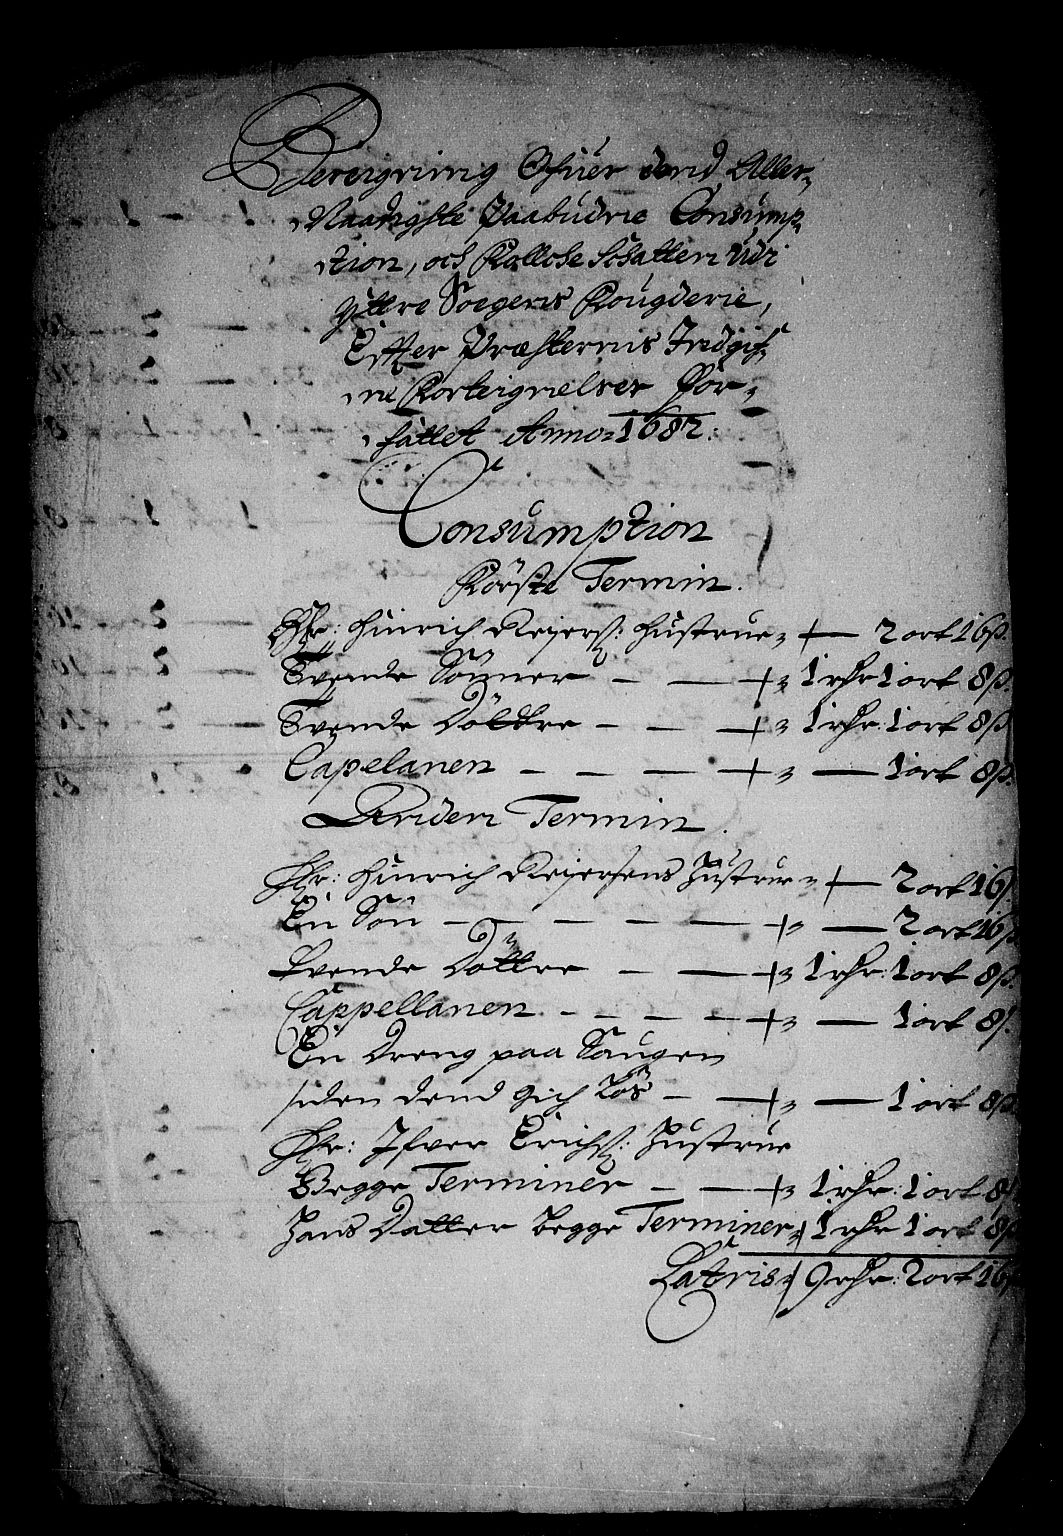 Bereigning Ofuer dend Aller-
Naadigste Paabudne Consump-
tion, och Follche Schatten Udi
Yttre Soegens Fougderie,
Effter Præsternis Indgif-
ne Forteignelser For-
fattet Anno 1682.
Consumption
Förste Termin.
Hr: Hinrich Meyers: Hustrue 2 ort 16 s.
Tvende Sönner 1 rdr 1 ort 8 s.
Tvende Döttre 1 rdr: 1 ort 8 s.
Capelanen 1 ort 8 s.
Anden Termin.
Hr: Hinrich Meyersens Hustrue 2 ort 16 s.
En Sön 2 ort 16 s.
Tvende Döttre 1 rdr: 1 ort 8 s.
Cappellanen 1 ort 8 s.
En Dreng paa Saugen
siden dend gich Lös 1 ort 8 s.
Hr: Ifver Erichs: Hustrue
Begge Terminer 1 rdr: 1 ort 8 s.
Hans Datter begge Terminer 1 rdr 1 ort 8 s.
Latris 9 rdr: 2 ort 16 s.